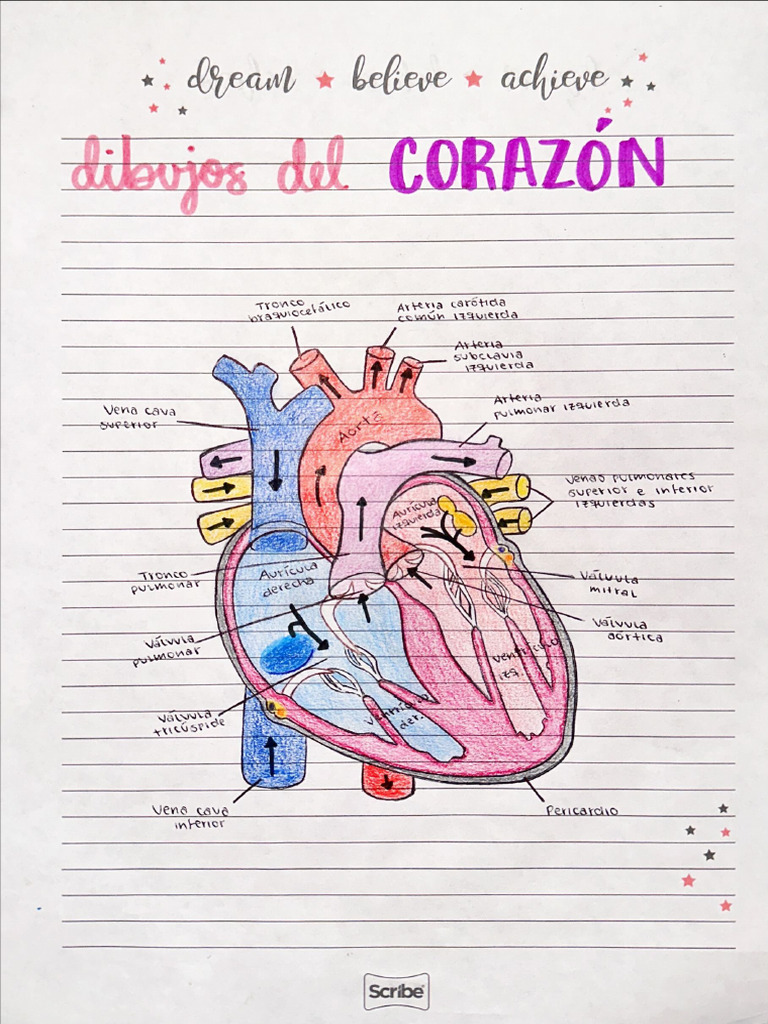 dream ★ believe ★ achieve
dibujos del CORAZÓN
Tronco
braquiocefálico
Arteria carótida
común izquierda
Arteria
subclavia
izquierda
Arteria
pulmonar izquierda
Vena cava
superior
Aorta
Venas pulmonares
superior e inferior
izquierdas
Aurícula
izquierda
Tronco
pulmonar
Aurícula
derecha
Válvula
mitral
Válvula
aórtica
Válvula
pulmonar
Ventrículo
izq.
Válvula
tricúspide
Ventrículo
der.
Vena cava
inferior
Pericardio
Scribe